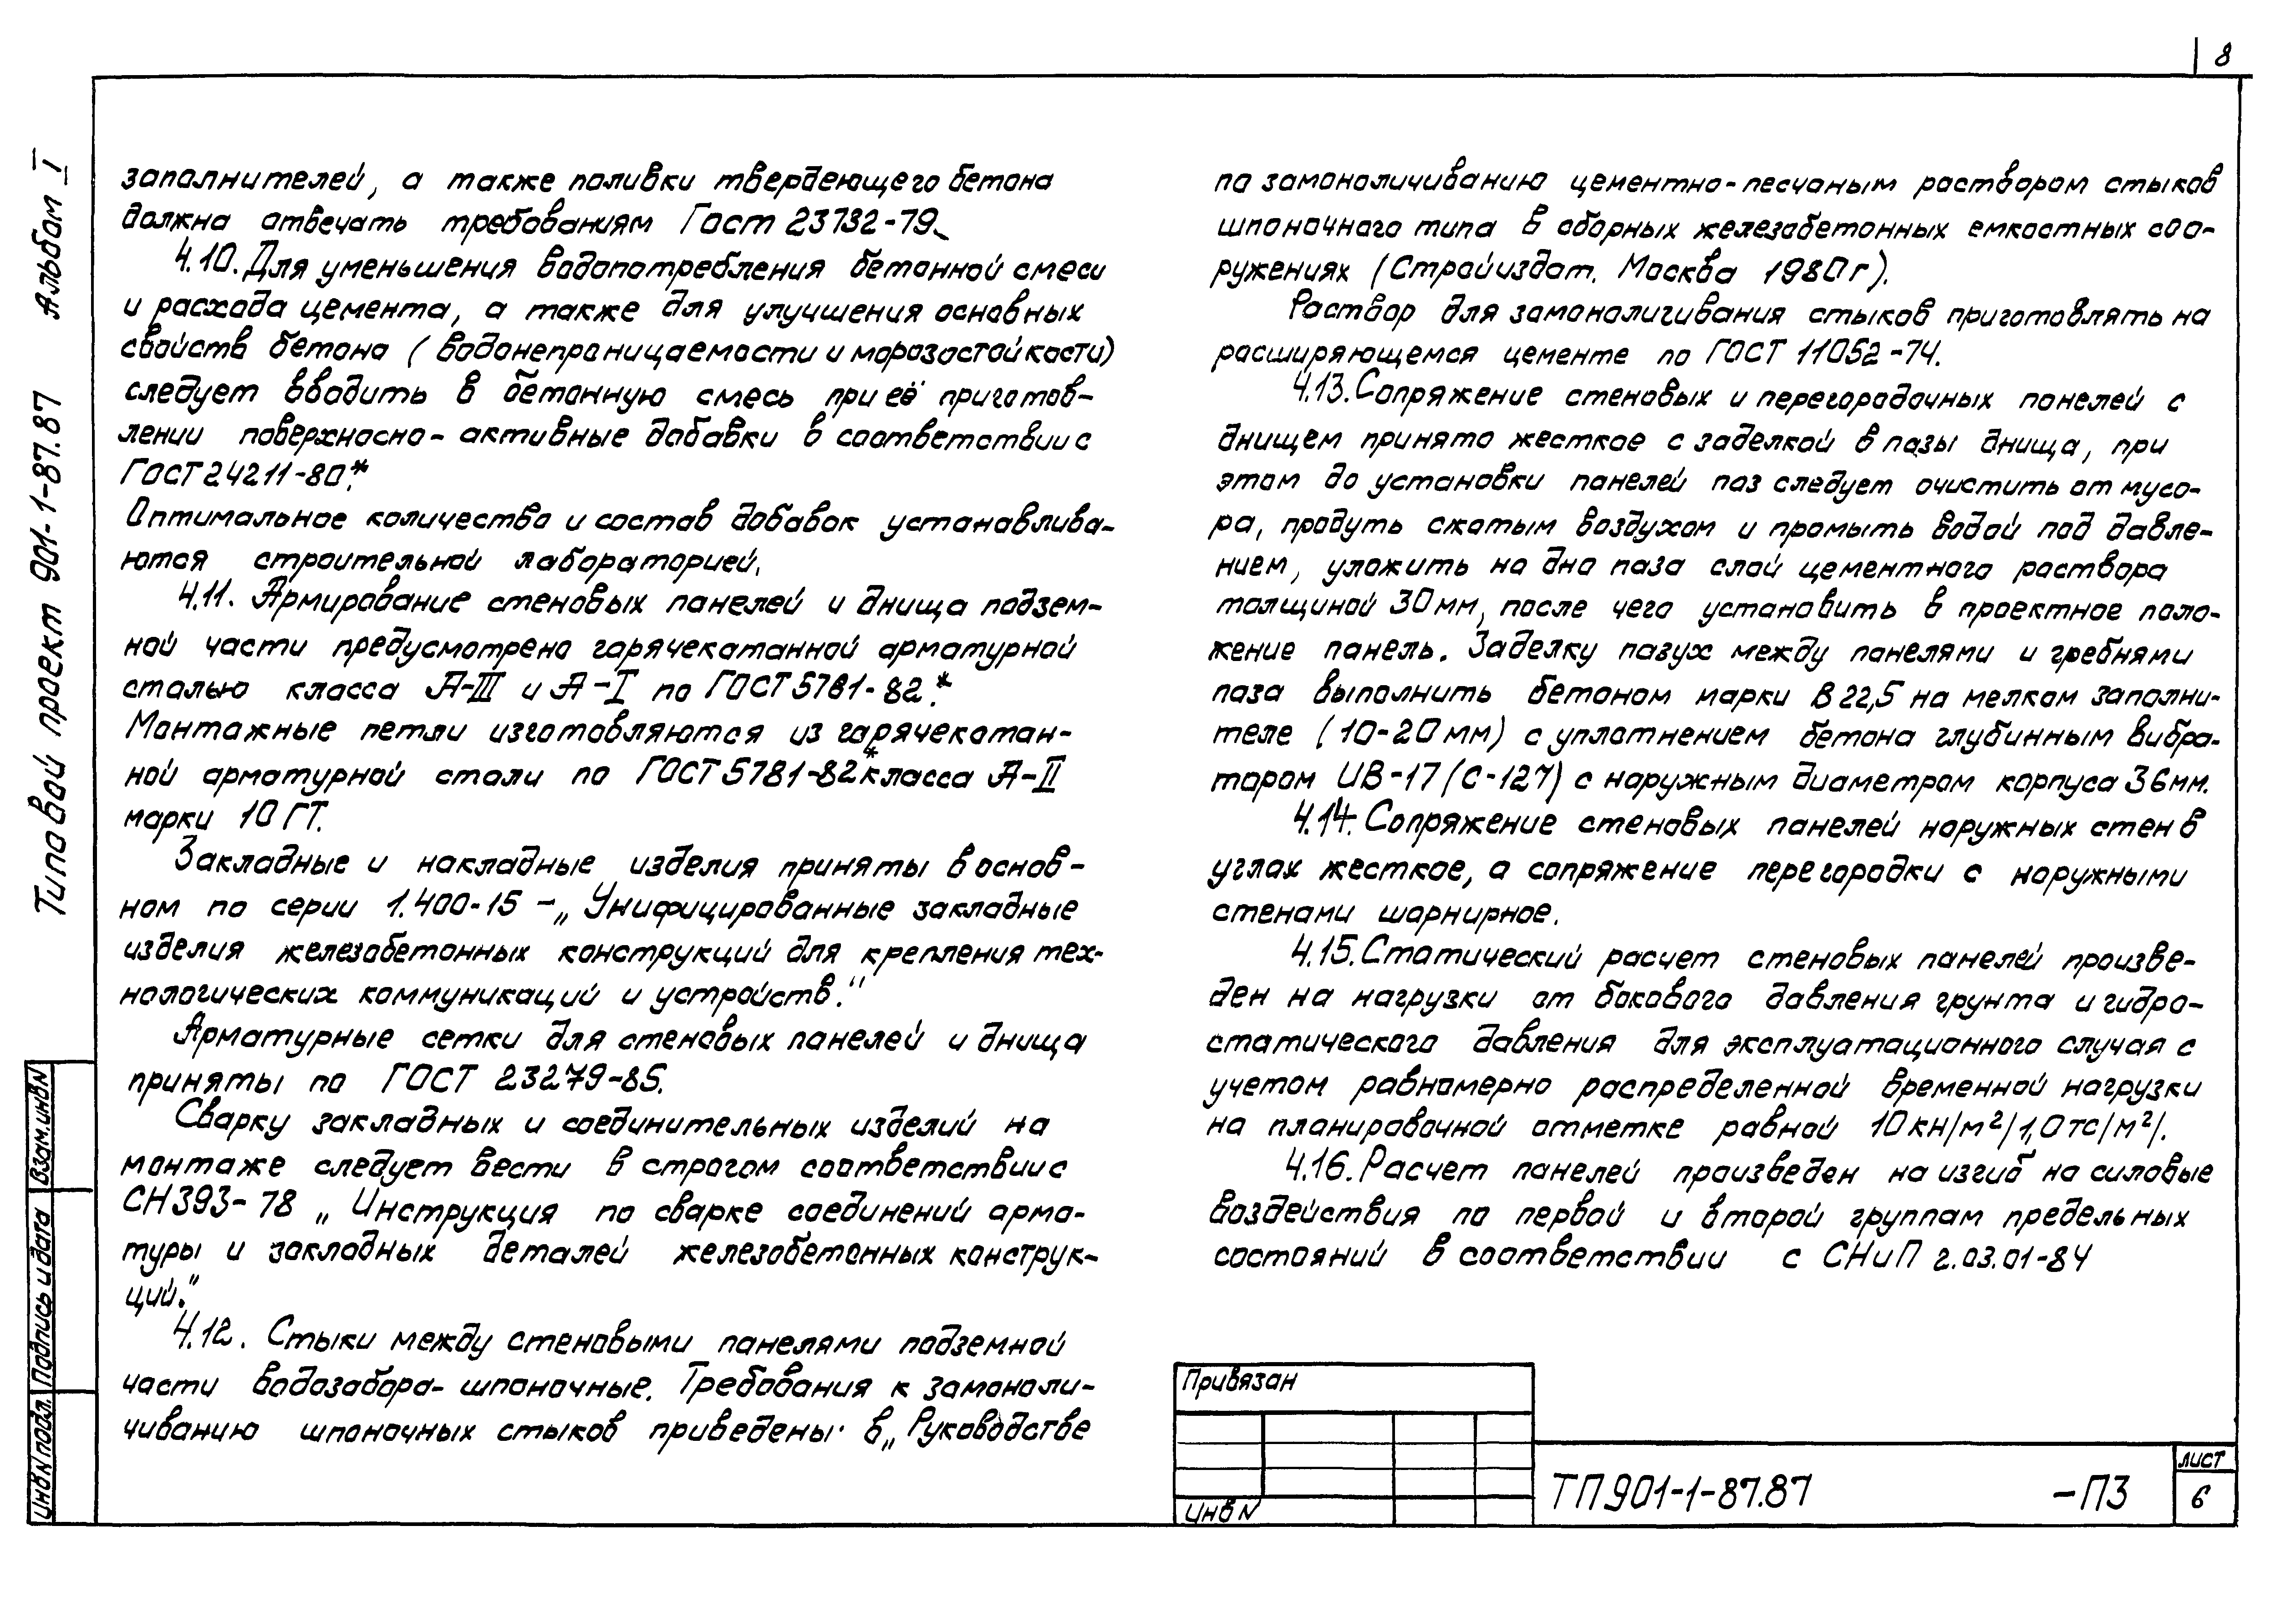 8
Типовой проект 901-1-87.87 Альбом I
заполнителей, а также поливки твердеющего бетона
должна отвечать требованиям Гост 23732-79.
4.10. Для уменьшения водопотребления бетонной смеси
и расхода цемента, а также для улучшения основных
свойств бетона (водонепроницаемости и морозостойкости)
следует вводить в бетонную смесь при её приготов-
лении поверхносно-активные добавки в соответствии с
ГОСТ 24211-80.*
Оптимальное количество и состав добавок устанавлива-
ются строительной лабораторией.
4.11. Армирование стеновых панелей и днища подзем-
ной части предусмотрено горячекатанной арматурной
сталью класса А-III и А-I по ГОСТ 5781-82.*
Монтажные петли изготовляются из горячекатан-
ной арматурной стали по ГОСТ 5781-82* класса А-II
марки 10 ГТ.
Закладные и накладные изделия приняты в основ-
ном по серии 1.400-15 -„Унифицированные закладные
изделия железобетонных конструкций для крепления тех-
нологических коммуникаций и устройств."
Арматурные сетки для стеновых панелей и днища
приняты по ГОСТ 23279-85.
Сварку закладных и соединительных изделий на
монтаже следует вести в строгом соответствии с
СН 393-78 „Инструкция по сварке соединений арма-
туры и закладных деталей железобетонных конструк-
ций."
4.12. Стыки между стеновыми панелями подземной
части водозабора- шпоночные. Требования к замоноли-
чиванию шпоночных стыков приведены в „Руководстве
по замоноличиванию цементно-песчаным раствором стыков
шпоночного типа в сборных железобетонных емкостных соо-
ружениях (Стройиздат. Москва 1980г).
Раствор для замоноличивания стыков приготовлять на
расширяющемся цементе по ГОСТ 11052-74.
4.13. Сопряжение стеновых и перегородочных панелей с
днищем принято жесткое с заделкой в пазы днища, при
этом до установки панелей паз следует очистить от мусо-
ра, продуть сжатым воздухом и промыть водой под давле-
нием, уложить на дно паза слой цементного раствора
толщиной 30 мм, после чего установить в проектное поло-
жение панель. Заделку пазух между панелями и гребнями
паза выполнить бетоном марки В 22,5 на мелком заполни-
теле (10-20 мм) с уплотнением бетона глубинным вибра-
тором ИВ-17 (С-127) с наружным диаметром корпуса 36 мм.
4.14. Сопряжение стеновых панелей наружных стен в
углах жесткое, а сопряжение перегородки с наружными
стенами шарнирное.
4.15. Статический расчет стеновых панелей произве-
ден на нагрузки от бокового давления грунта и гидро-
статического давления для эксплуатационного случая с
учетом равномерно распределенной временной нагрузки
на планировочной отметке равной 10 кн/м²/1,0 тс/м²/.
4.16. Расчет панелей произведен на изгиб на силовые
воздействия по первой и второй группам предельных
состояний в соответствии с СНиП 2.03.01-84
Привязан
Инв N
ТП 901-1-87.87 -ПЗ
лист
6
Инв N подл. Подпись и дата Взам.инв N